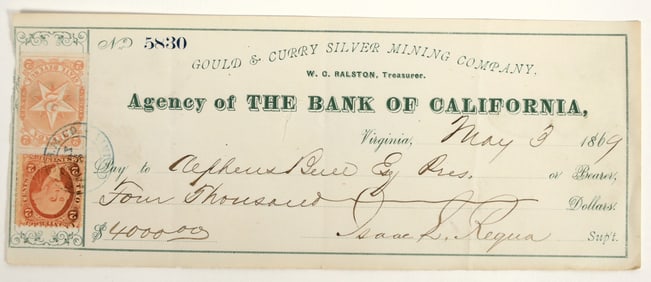 No 5830
GOULD & CURRY SILVER MINING COMPANY,
W. C. RALSTON, Treasurer.
Agency of THE BANK OF CALIFORNIA,
Virginia, May 3 1869
Pay to Alpheus Bull Esq Pres. or Bearer,
Four Thousand Dollars.
$4000.00 Isaac L. Requa Sup't.